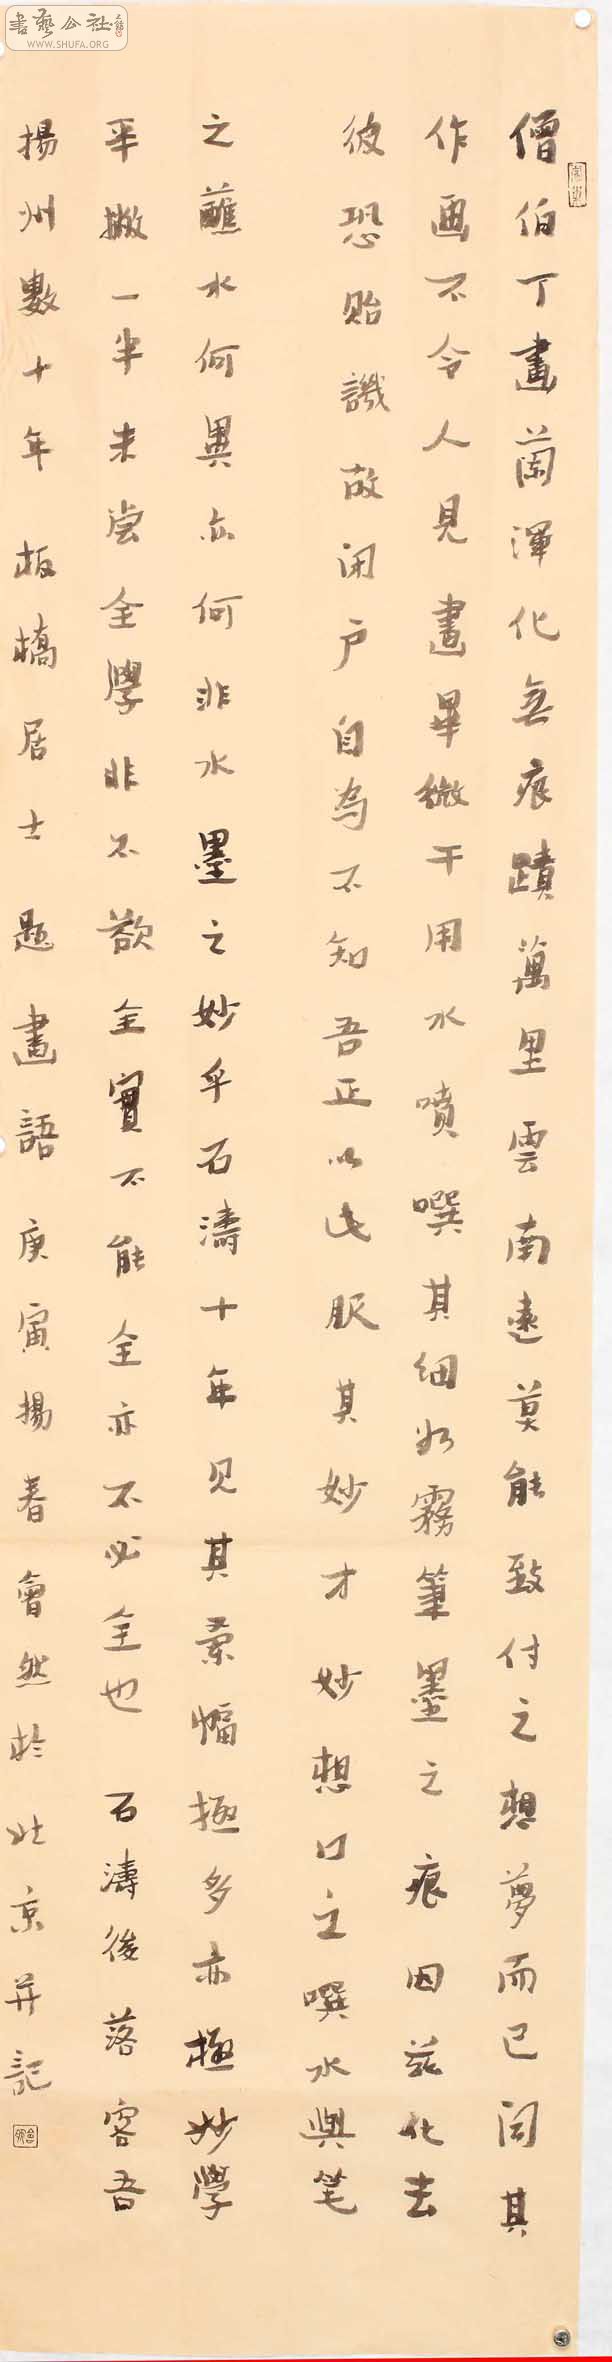 書藝公社
WWW.SHUFA.ORG
僧伯丁畫蘭渾化無痕蹟萬里雲南遠莫能致付之想夢而已聞其
作画不令人見畫畢微干用水噴噀其细如霧筆墨之痕因茲化去
彼恐貽譏故闭户自为不知吾正以此服其妙才妙想口之噀水與笔
之蘸水何異亦何非水墨之妙乎石濤十年见其蘭幅極多亦極妙學
平撇一半未嘗全學非不欲全實不能全亦不必全也石濤後落客吾
揚州數十年板橋居士题畫語庚寅揚春會然於北京并記